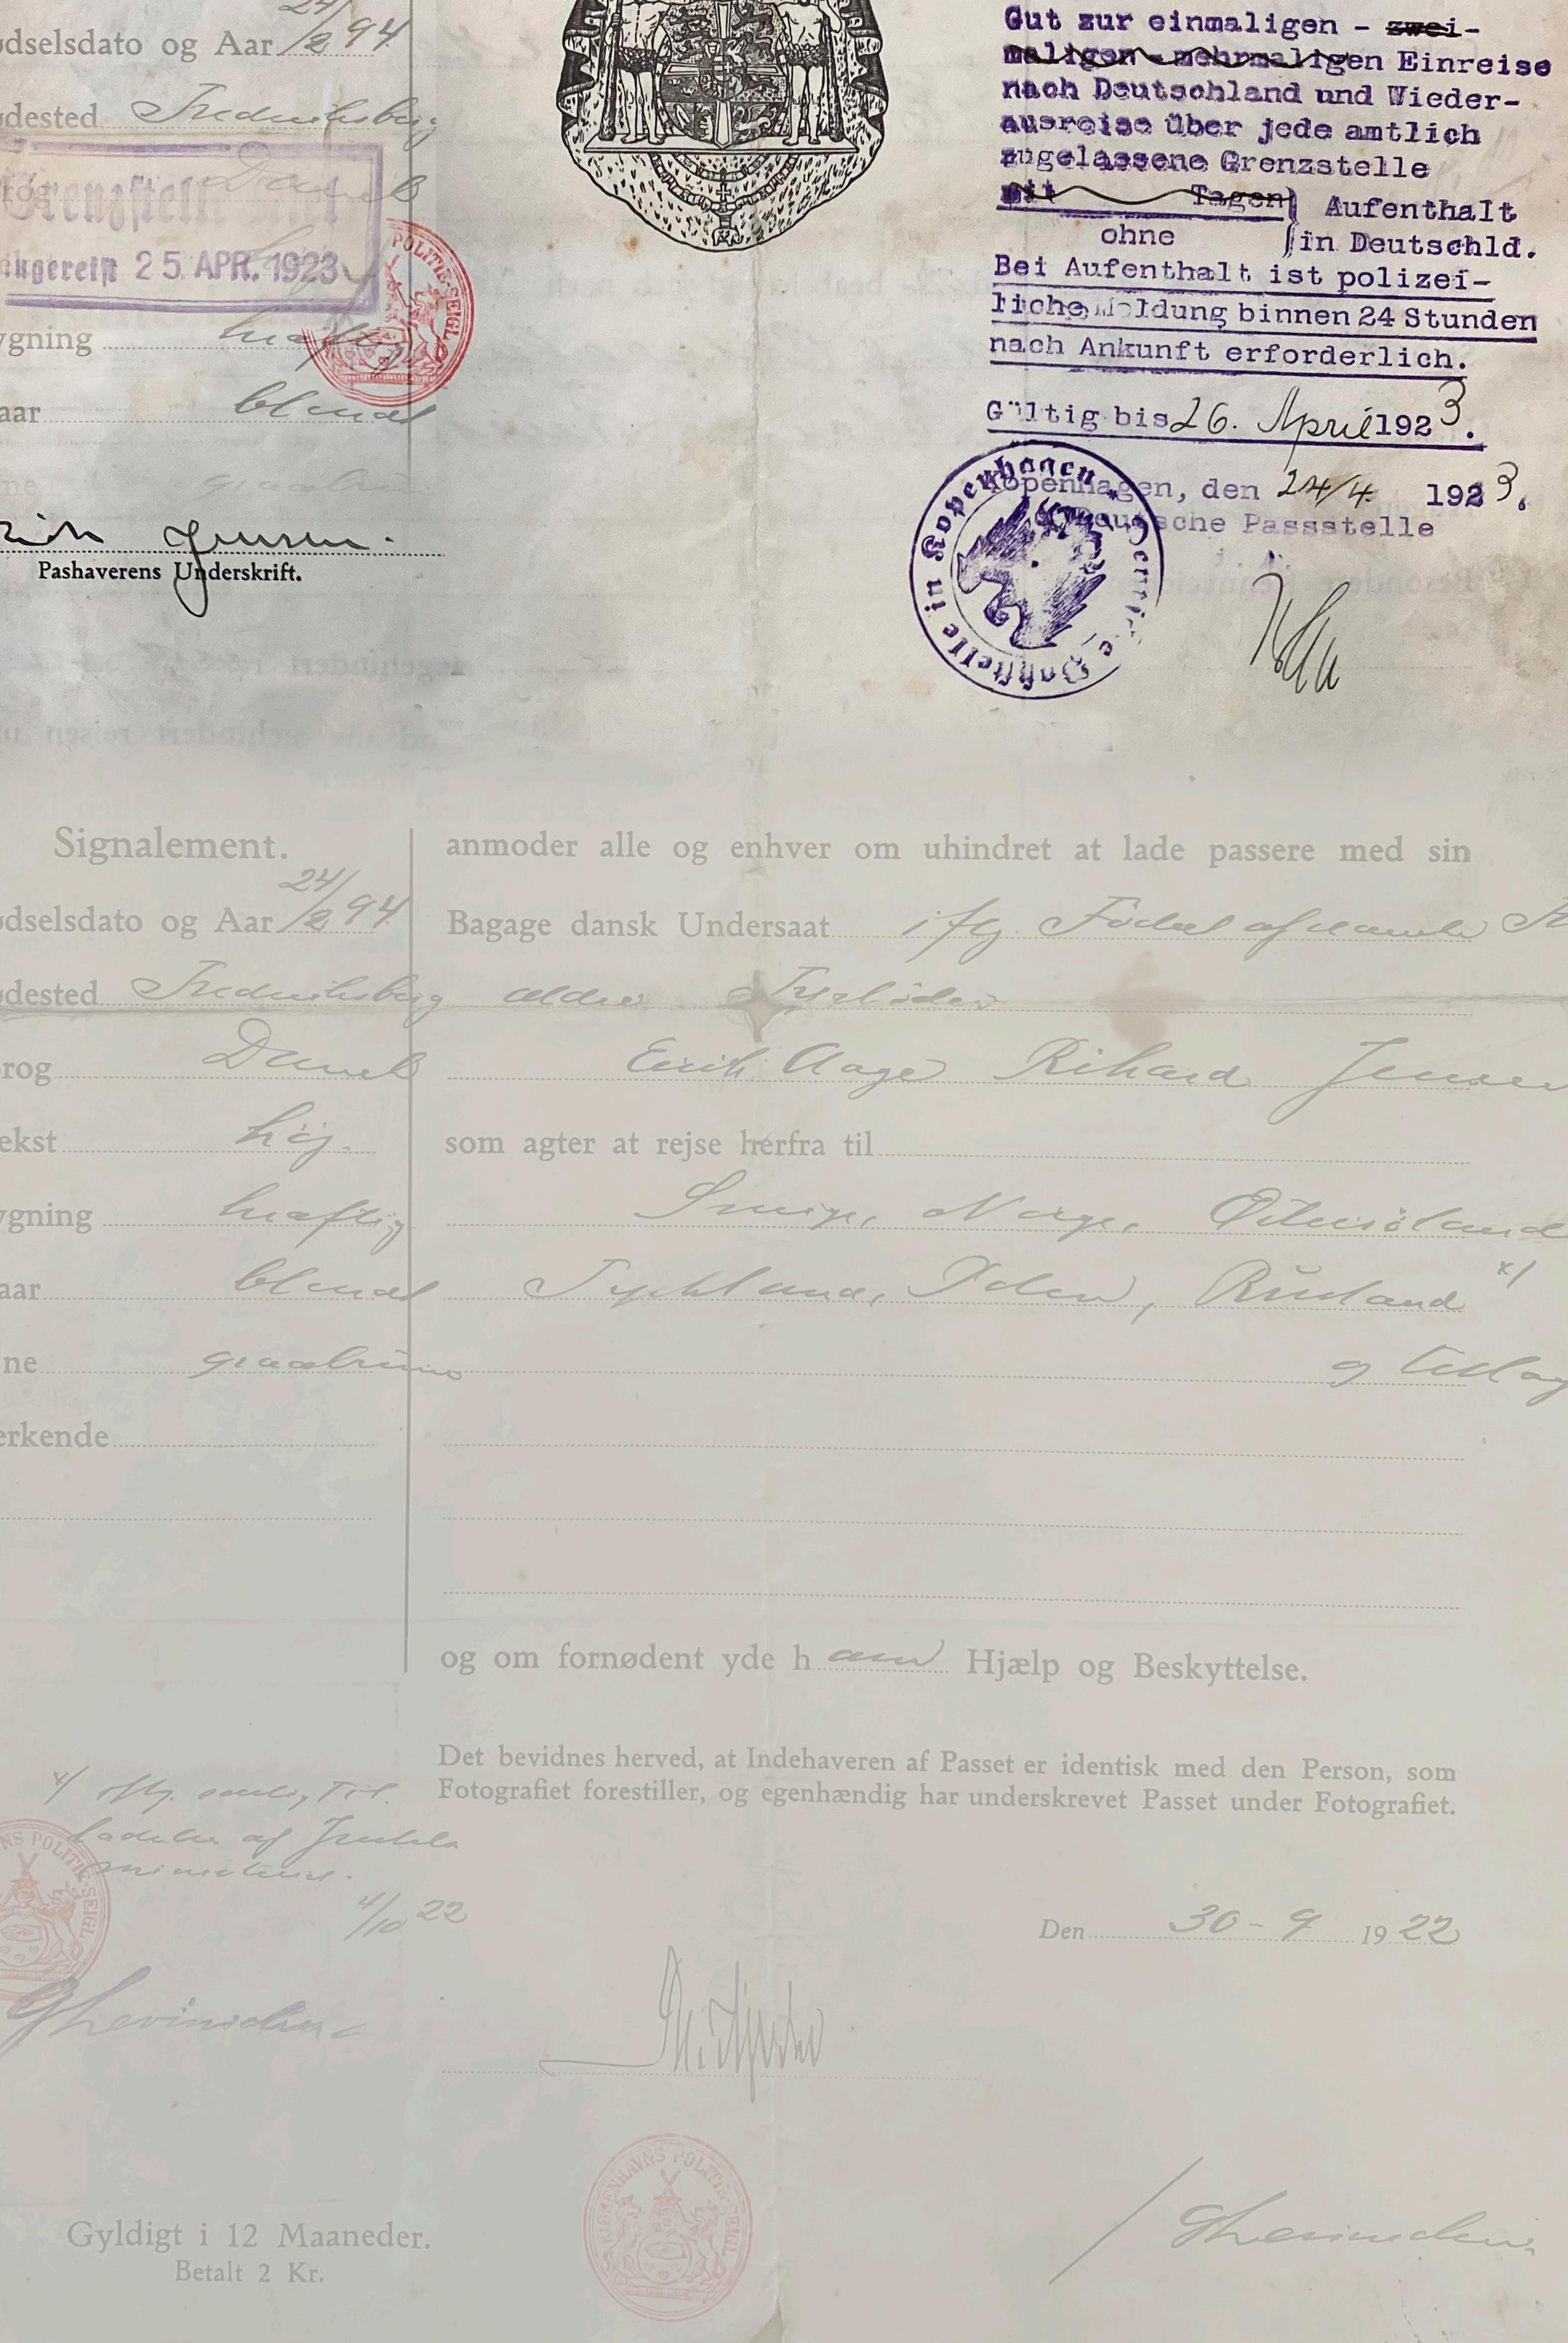 24/2 94.
ødselsdato og Aar
ødested Frederiksberg
Dansk
Grenzstelle
25. APR. 1923
POLITIE-SEIGL
ygning kraftig
aar blondt
ne
Jensen.
Pashaverens Underskrift.
Gut zur einmaligen - zwei-
maligen - mehrmaligen Einreise
nach Deutschland und Wieder-
ausreise über jede amtlich
zugelassene Grenzstelle
mit Tagen} Aufenthalt
ohne }in Deutschld.
Bei Aufenthalt ist polizei-
liche Meldung binnen 24 Stunden
nach Ankunft erforderlich.
Gültig bis 26. April 1923.
Kopenhagen, den 24/4 1923.
Deutsche Passstelle
Deutsche Paßstelle in Kopenhagen
Signalement.
24/2 94.
ødselsdato og Aar
ødested Frederiksberg
rog Dansk
ekst høj.
ygning kraftig
aar blondt
ne graabrune
ærkende
anmoder alle og enhver om uhindret at lade passere med sin
Bagage dansk Undersaat iflg. Födsel
Aage Rihard Jensen
som agter at rejse herfra til
Norge,
Tyskland, Rusland x/
og
og om fornødent yde ham Hjælp og Beskyttelse.
Det bevidnes herved, at Indehaveren af Passet er identisk med den Person, som
Fotografiet forestiller, og egenhændig har underskrevet Passet under Fotografiet.
x/ iflg. Til
ladelse af Justits
ministeriet.
4/10 22
NS POLITIE-SEIGL
Den 30-9 1922
KJØBENHAVNS POLITIE-SEIGL
Gyldigt i 12 Maaneder.
Betalt 2 Kr.